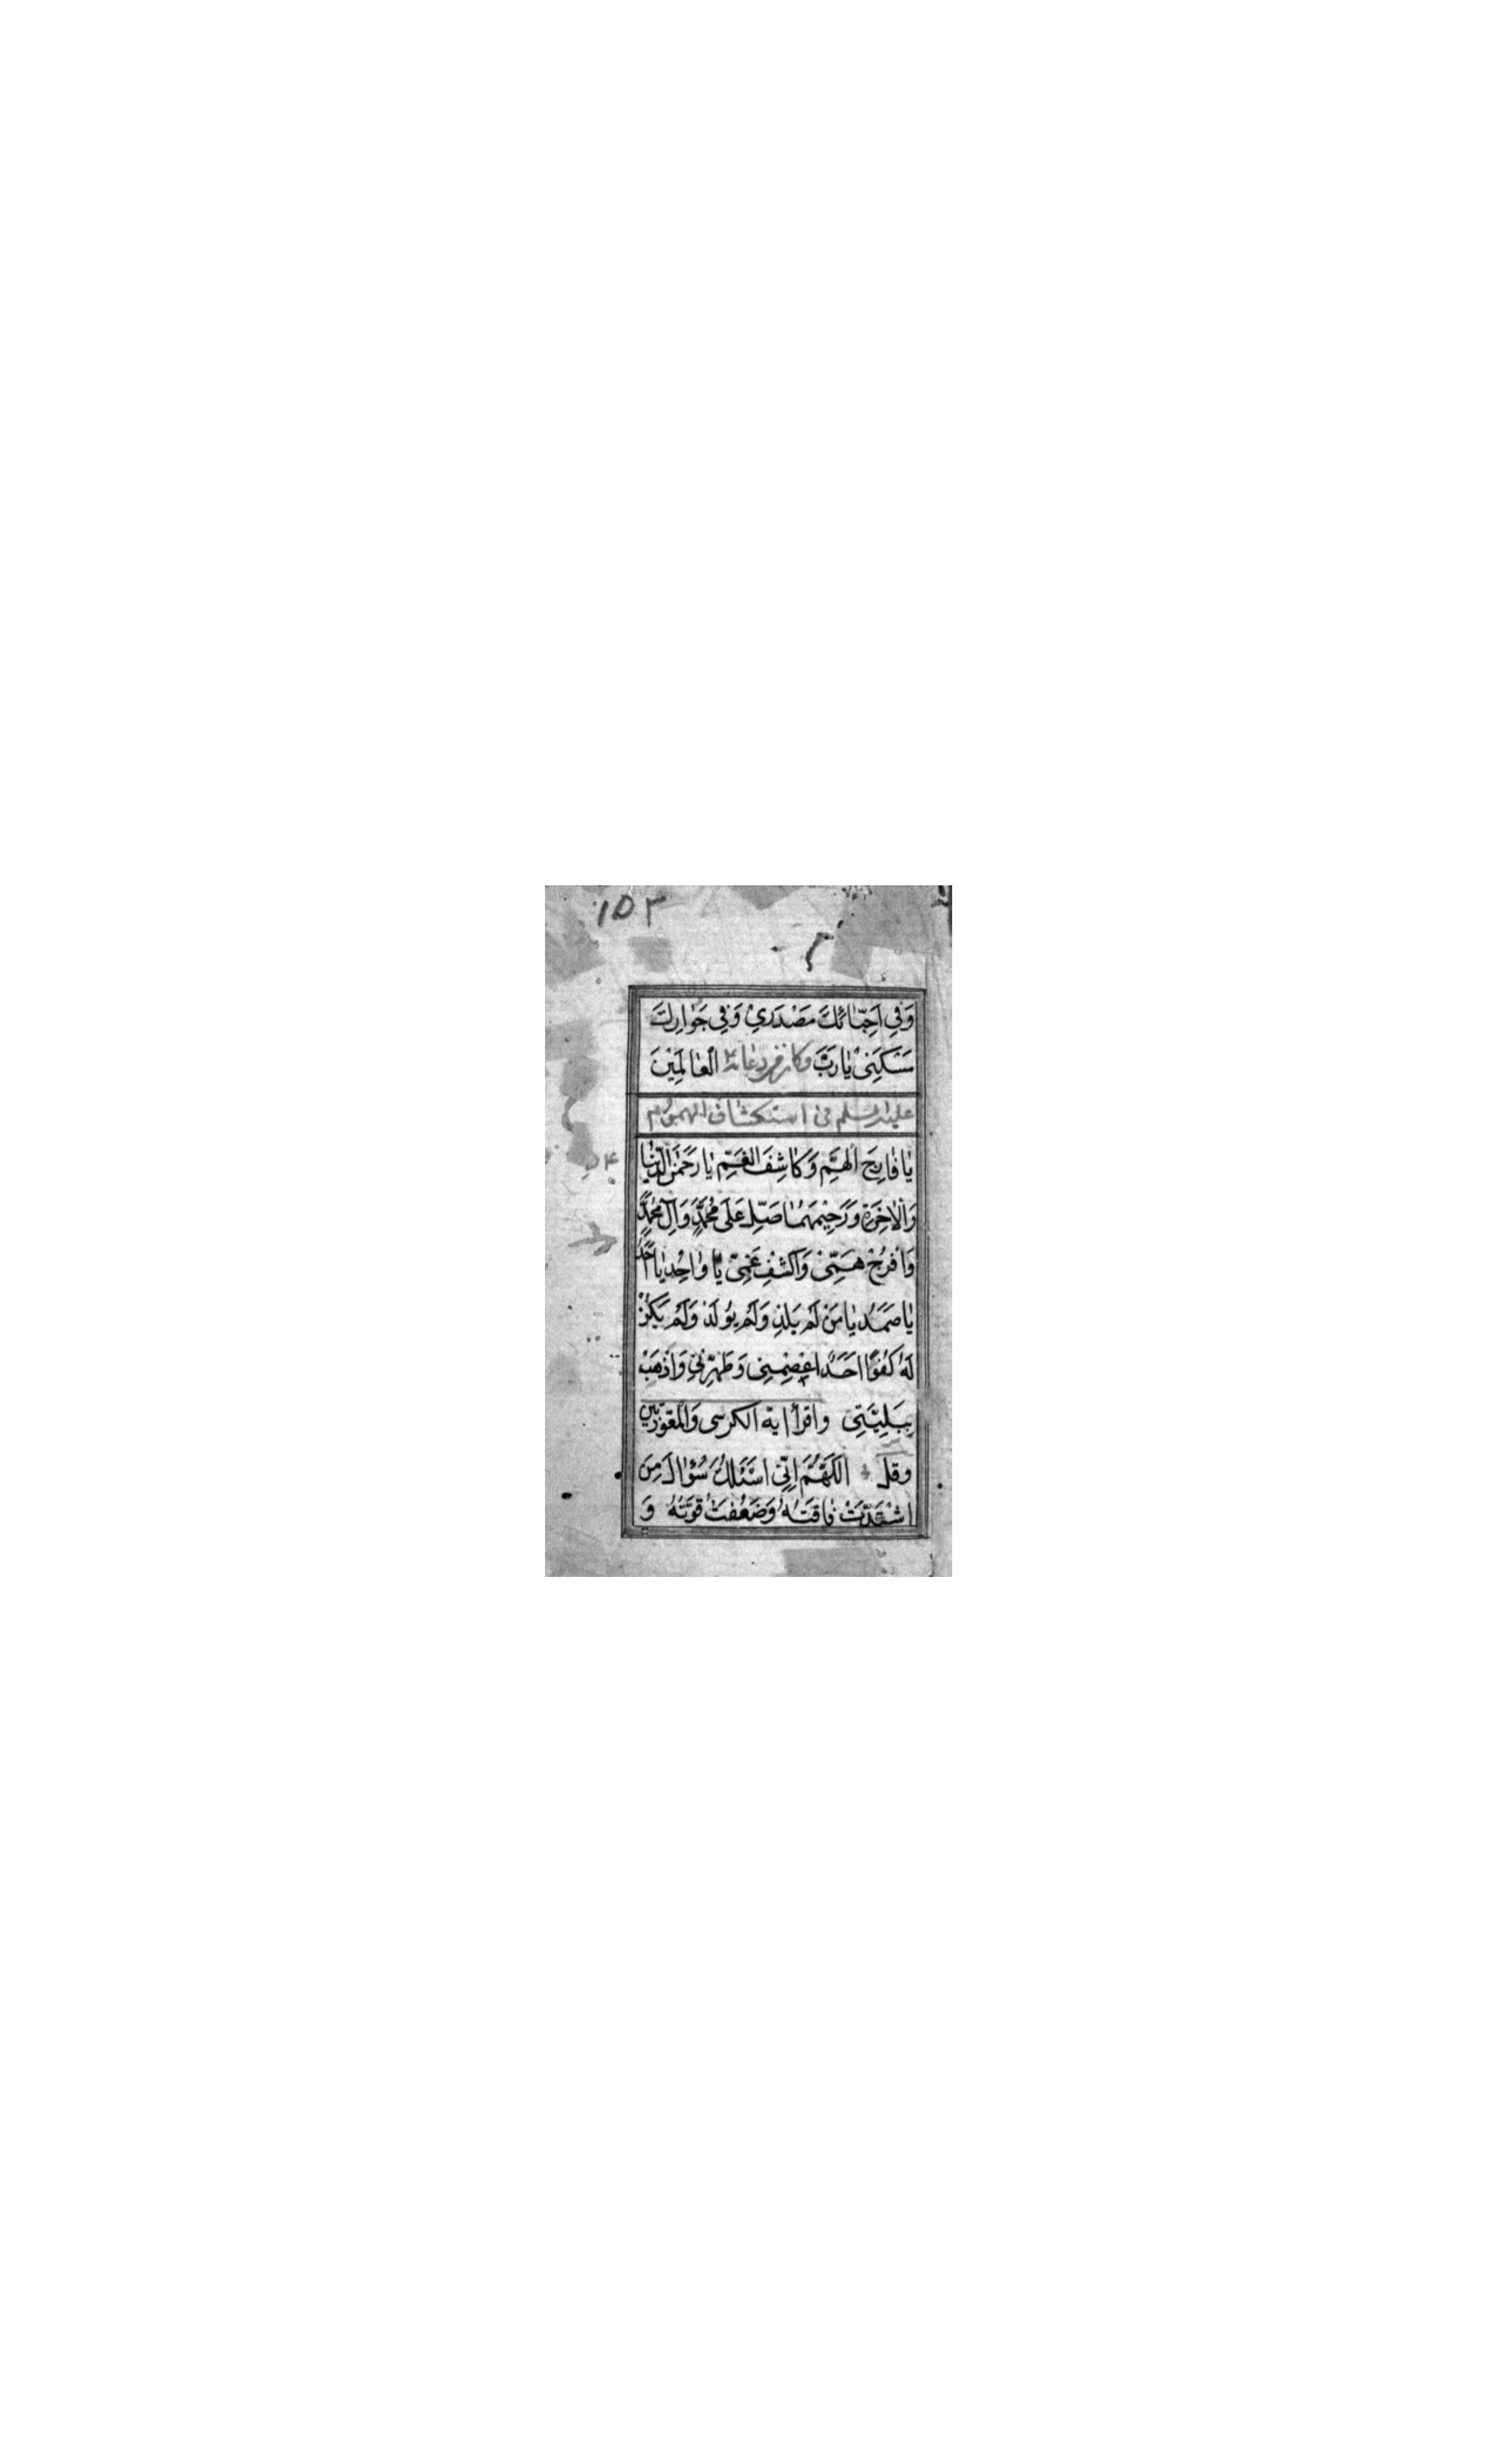 ۱۵۳
وَفِي اَحِبّٰائِكَ مَصْدَرِيْ وَفِي جَوٰارِكَ
مَسْكَنِىْ يٰا رَبَّ وكان من دعائه الْعٰالَمِيْنَ
عليه السلم فى استكشاف الهموم
يٰا فٰارِجَ الْهَمِّ وَكٰاشِفَ الْغَمِّ يٰا رَحْمٰنَ الدُّنْيٰا
وَالْاٰخِرَةِ وَرَحِيْمَهُمٰا صَلِّ عَلىٰ مُحَمَّدٍ وَآلِ مُحَمَّدٍ
وَافْرُجْ هَمِّىْ وَاكْشِفْ غَمِّىْ يٰا وٰاحِدُ يٰا اَحَدُ
يٰا صَمَدُ يٰا مَنْ لَمْ يَلِدْ وَلَمْ يُولَدْ وَلَمْ يَكُنْ
لَهُ كُفُوًا اَحَدٌ اعْصِمْنِى وَطَهِّرْنِي وَاذْهَبْ
بِبَلِيَّتِى واقرأ اية الكرسى والمعوّذتين
وقل اَللّٰهُمَّ اِنِّي اَسْئَلُكَ سُؤٰالَ مَنِ
اشْتَدَّتْ فٰاقَتُهُ وَضَعُفَتْ قُوَّتُهُ وَ